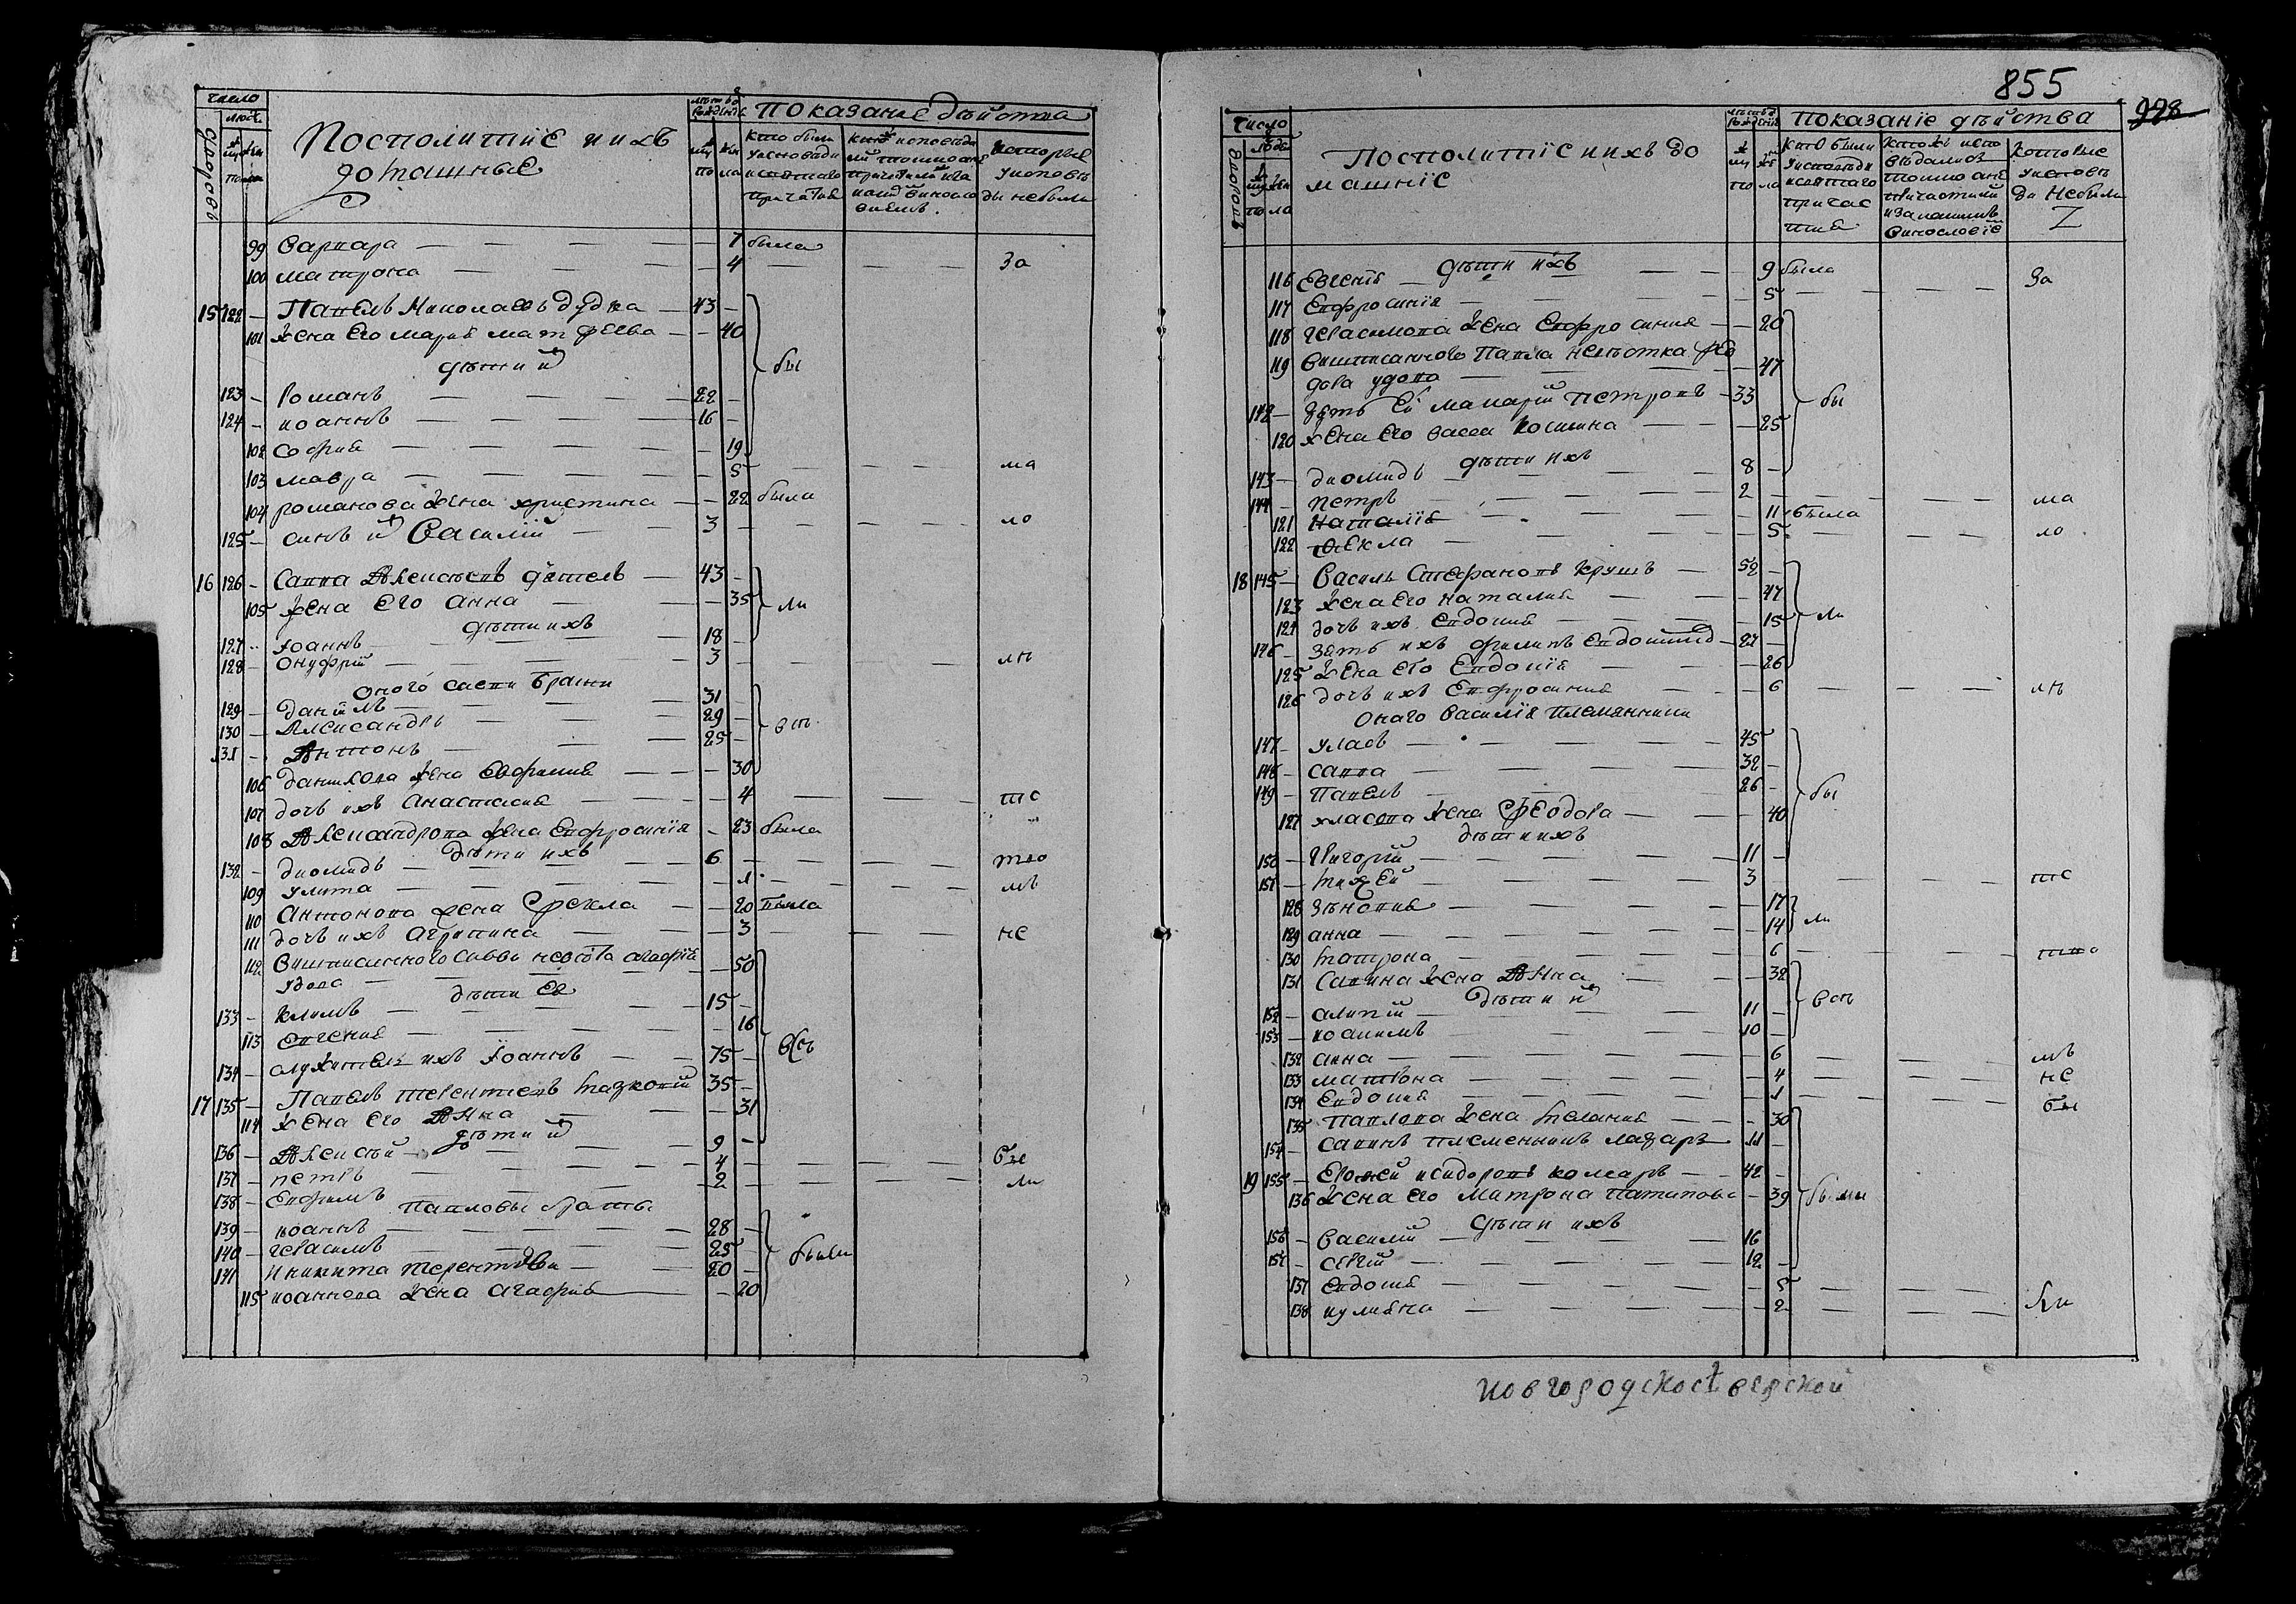 число
людей
дворовъ
му жен
пола
Посполитие и ихъ
домашные
лѣтъ от рождения
му жен
по ла
Показание дѣйства
кто были у исповеди и святаго причастия
кто исповедали токмо а не причастили и за каимъ винословиемъ.
которые у исповеди не были
99 Варвара — 7 была
100 матрона — 4 — за
15 122 — Павелъ Николаевъ дудка — 43 —
101 жена его мария матфеева — 40
дѣти ӥ
бы
123 — Романъ — 22 —
124 — иоаннъ — 16 —
102 софия — 19
103 мавра — 5 — ма
104 романова жена христина — 22 была
125 — синъ ӥ Василий — 3 — ло
16 126 — Савва Алексѣевъ дятелъ — 43 —
105 жена его анна — 35 ли
дѣти ихъ
127 — Иоаннъ — 18 —
128 — онуфрий — 3 — лѣ
оного саввы браты
129 — даниилъ — 31 —
130 — Александръ — 29 —
131 — Антонъ — 25 —
106 данилова жена Евфимия — 30
107 дочь ихъ анастасия — 4 — тс
108 Александрова жена Евфросиния — 23 была
дѣти ихъ
132 — диомидъ — 6 — тво
109 улита — 1 — мъ
110 антонова жена Фекла — 20 была
111 дочь ихъ агрипина — 3 — не
112 Вишписанного саввы невѣстка агафия — 50
удова —
дѣти Ея
133 — климъ — 15 —
113 евгения — 16
134 — служитель ихъ Иоаннъ — 75 —
17 135 — Павелъ терентиевъ — 35 —
114 жена его Анна — 31
дѣти ӥ
136 — Алексѣй — 9 —
137 — петръ — 4 — бы
138 — Евфимъ — 2 — ли
павловы братья
139 — иоаннъ — 28 —
140 — герасимъ — 25 —
141 — Никита терентиеви — 20 —
115 иоаннова жена агафия — 20
были
855
928
число
люди
дворовъ
му жен
по ла
Посполитіе и ихъ до
машніе
лѣтъ от рождения
му же
по ла
показаніе дѣйства
кто были у исповеди и святаго причастия
кто же исповѣдались токмо а не причастили и за каимъ винословіе
которые у исповеди не были
дѣти ихъ
116 Евгения — 9 была
117 Евфросиния — 5 — за
118 герасимова жена Евфросиния — 20
119 Вишписанного Павла невѣстка фео
дора удова — 47
142 — зять Ей макарий петровъ — 33
бы
120 жена его васса космина — 25
дѣти ихъ
143 — диомидъ — 8 —
144 — петръ — 2 — ма
121 Наталія — 11 была
122 Фекла — 5 — ло
18 145 — Василь Стефановъ крушъ — 52 —
123 жена его наталия — 47
124 дочь ихъ Евдокия — 15 ли
146 — зять ихъ филипъ — 27 —
125 жена его Евдокія — 26
126 дочь ихъ Евфросиния — 6 — лѣ
онаго Василія племянники
147 — уласъ — 45 —
148 — савва — 32 —
149 — Павелъ — 26 —
бы
127 власова жена Феодора — 40
дѣти ихъ
150 — Григорий — 11 —
151 — — 3 — тс
128 Зѣновия — 17
129 анна — 14 ли
130 матрона — 6 — тва
131 Савина жена Анна — 32
дѣти ӥ
152 — алипий — 11 —
153 — иоакимъ — 10 —
132 анна — 6 — мъ
133 матрона — 4 — не
134 Евдокия — 1 — бы
135 Павлова жена мелания — 30
154 — савинъ племенникъ лазаръ — 11 —
19 155 — исидоровъ комаръ — 42 —
136 жена его Матрона патапова — 39 были
дѣти ихъ
156 — Василий — 16
157 — сергий — 12 —
137 евдокия — 5
138 иулияна — 2 — бли
новгородскосѣверской